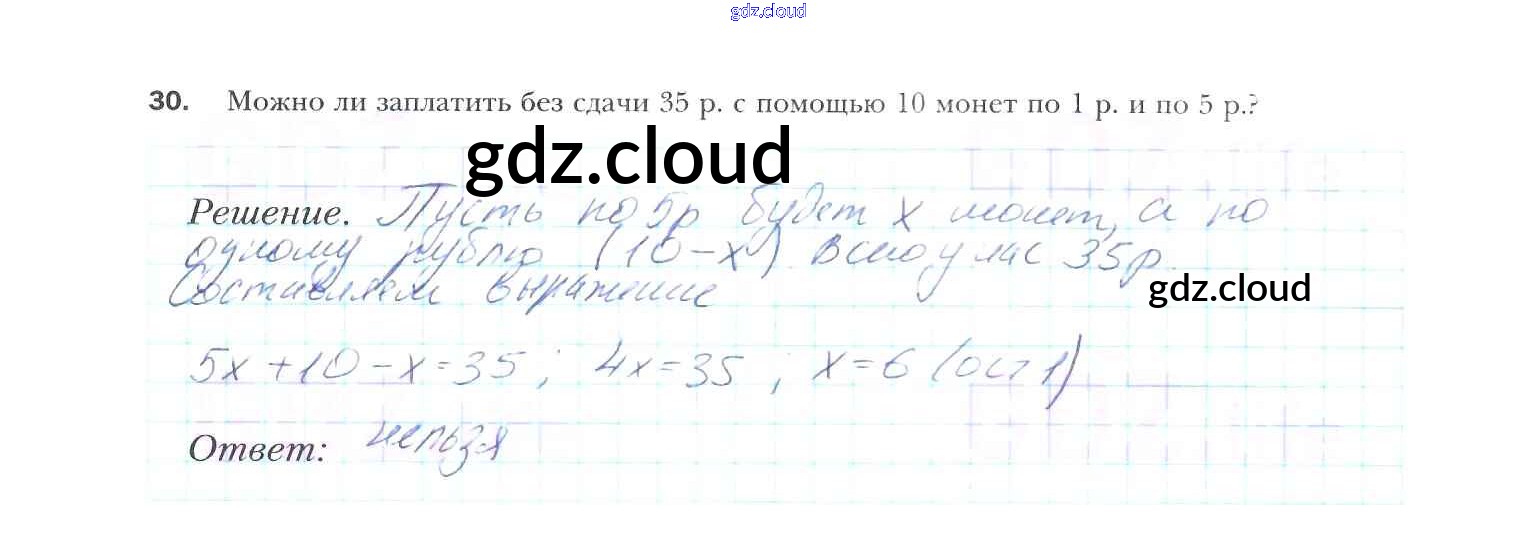 gdz.cloud
30. Можно ли заплатить без сдачи 35 р. с помощью 10 монет по 1 р. и по 5 р.?
gdz.cloud
Решение. Пусть по 5р будет x монет, а по
одному рублю (10-x). Всего у нас 35р.
Составляем выражение
gdz.cloud
5x+10-x=35; 4x=35; x=6 (ост 1)
Ответ: нельзя